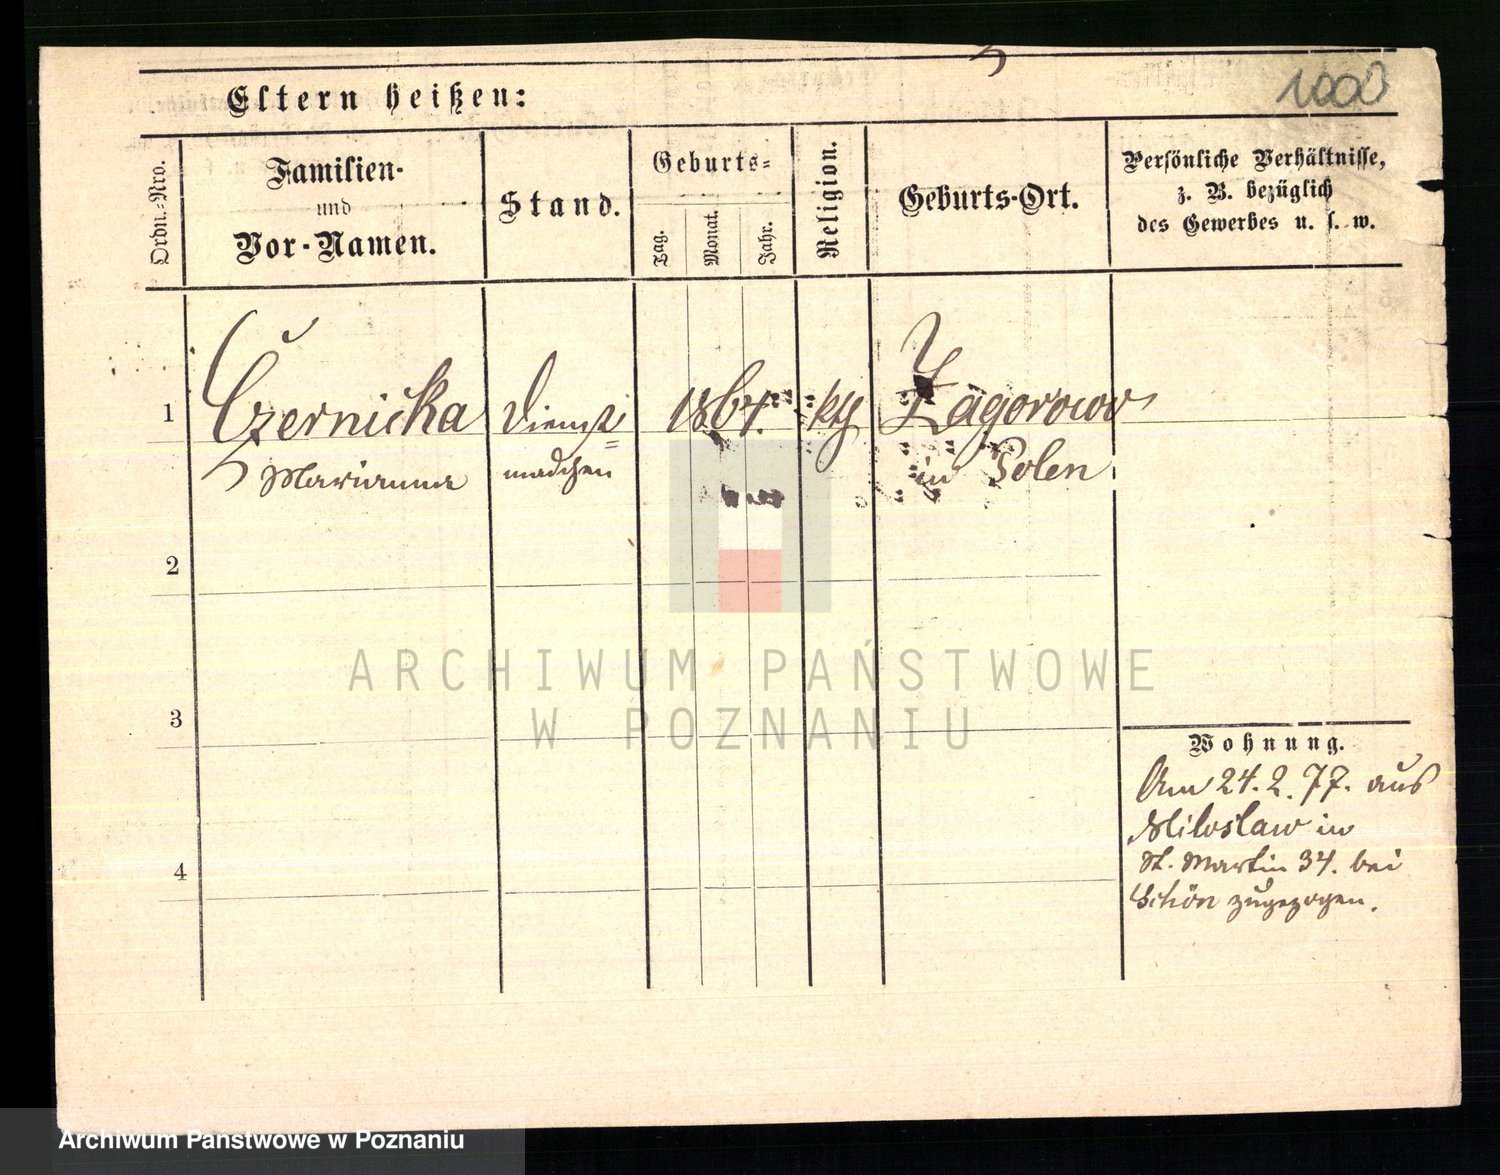 1000
Eltern heißen:
Ordn.-Nro.
Familien-
und
Vor-Namen.
Stand.
Geburts-
Tag.
Monat.
Jahr.
Religion.
Geburts-Ort.
Persönliche Verhältnisse,
z. B. bezüglich
des Gewerbes u. s. w.
1
Czernicka
Marianna
Dienst=
madchen
1864.
kth
Zagorowo
in Polen
2
3
4
Wohnung.
Am 24. 2. 77. aus
Miloslaw in
St. Martin 34. bei
Schön zugezogen.
ARCHIWUM PAŃSTWOWE
W POZNANIU
Archiwum Państwowe w Poznaniu